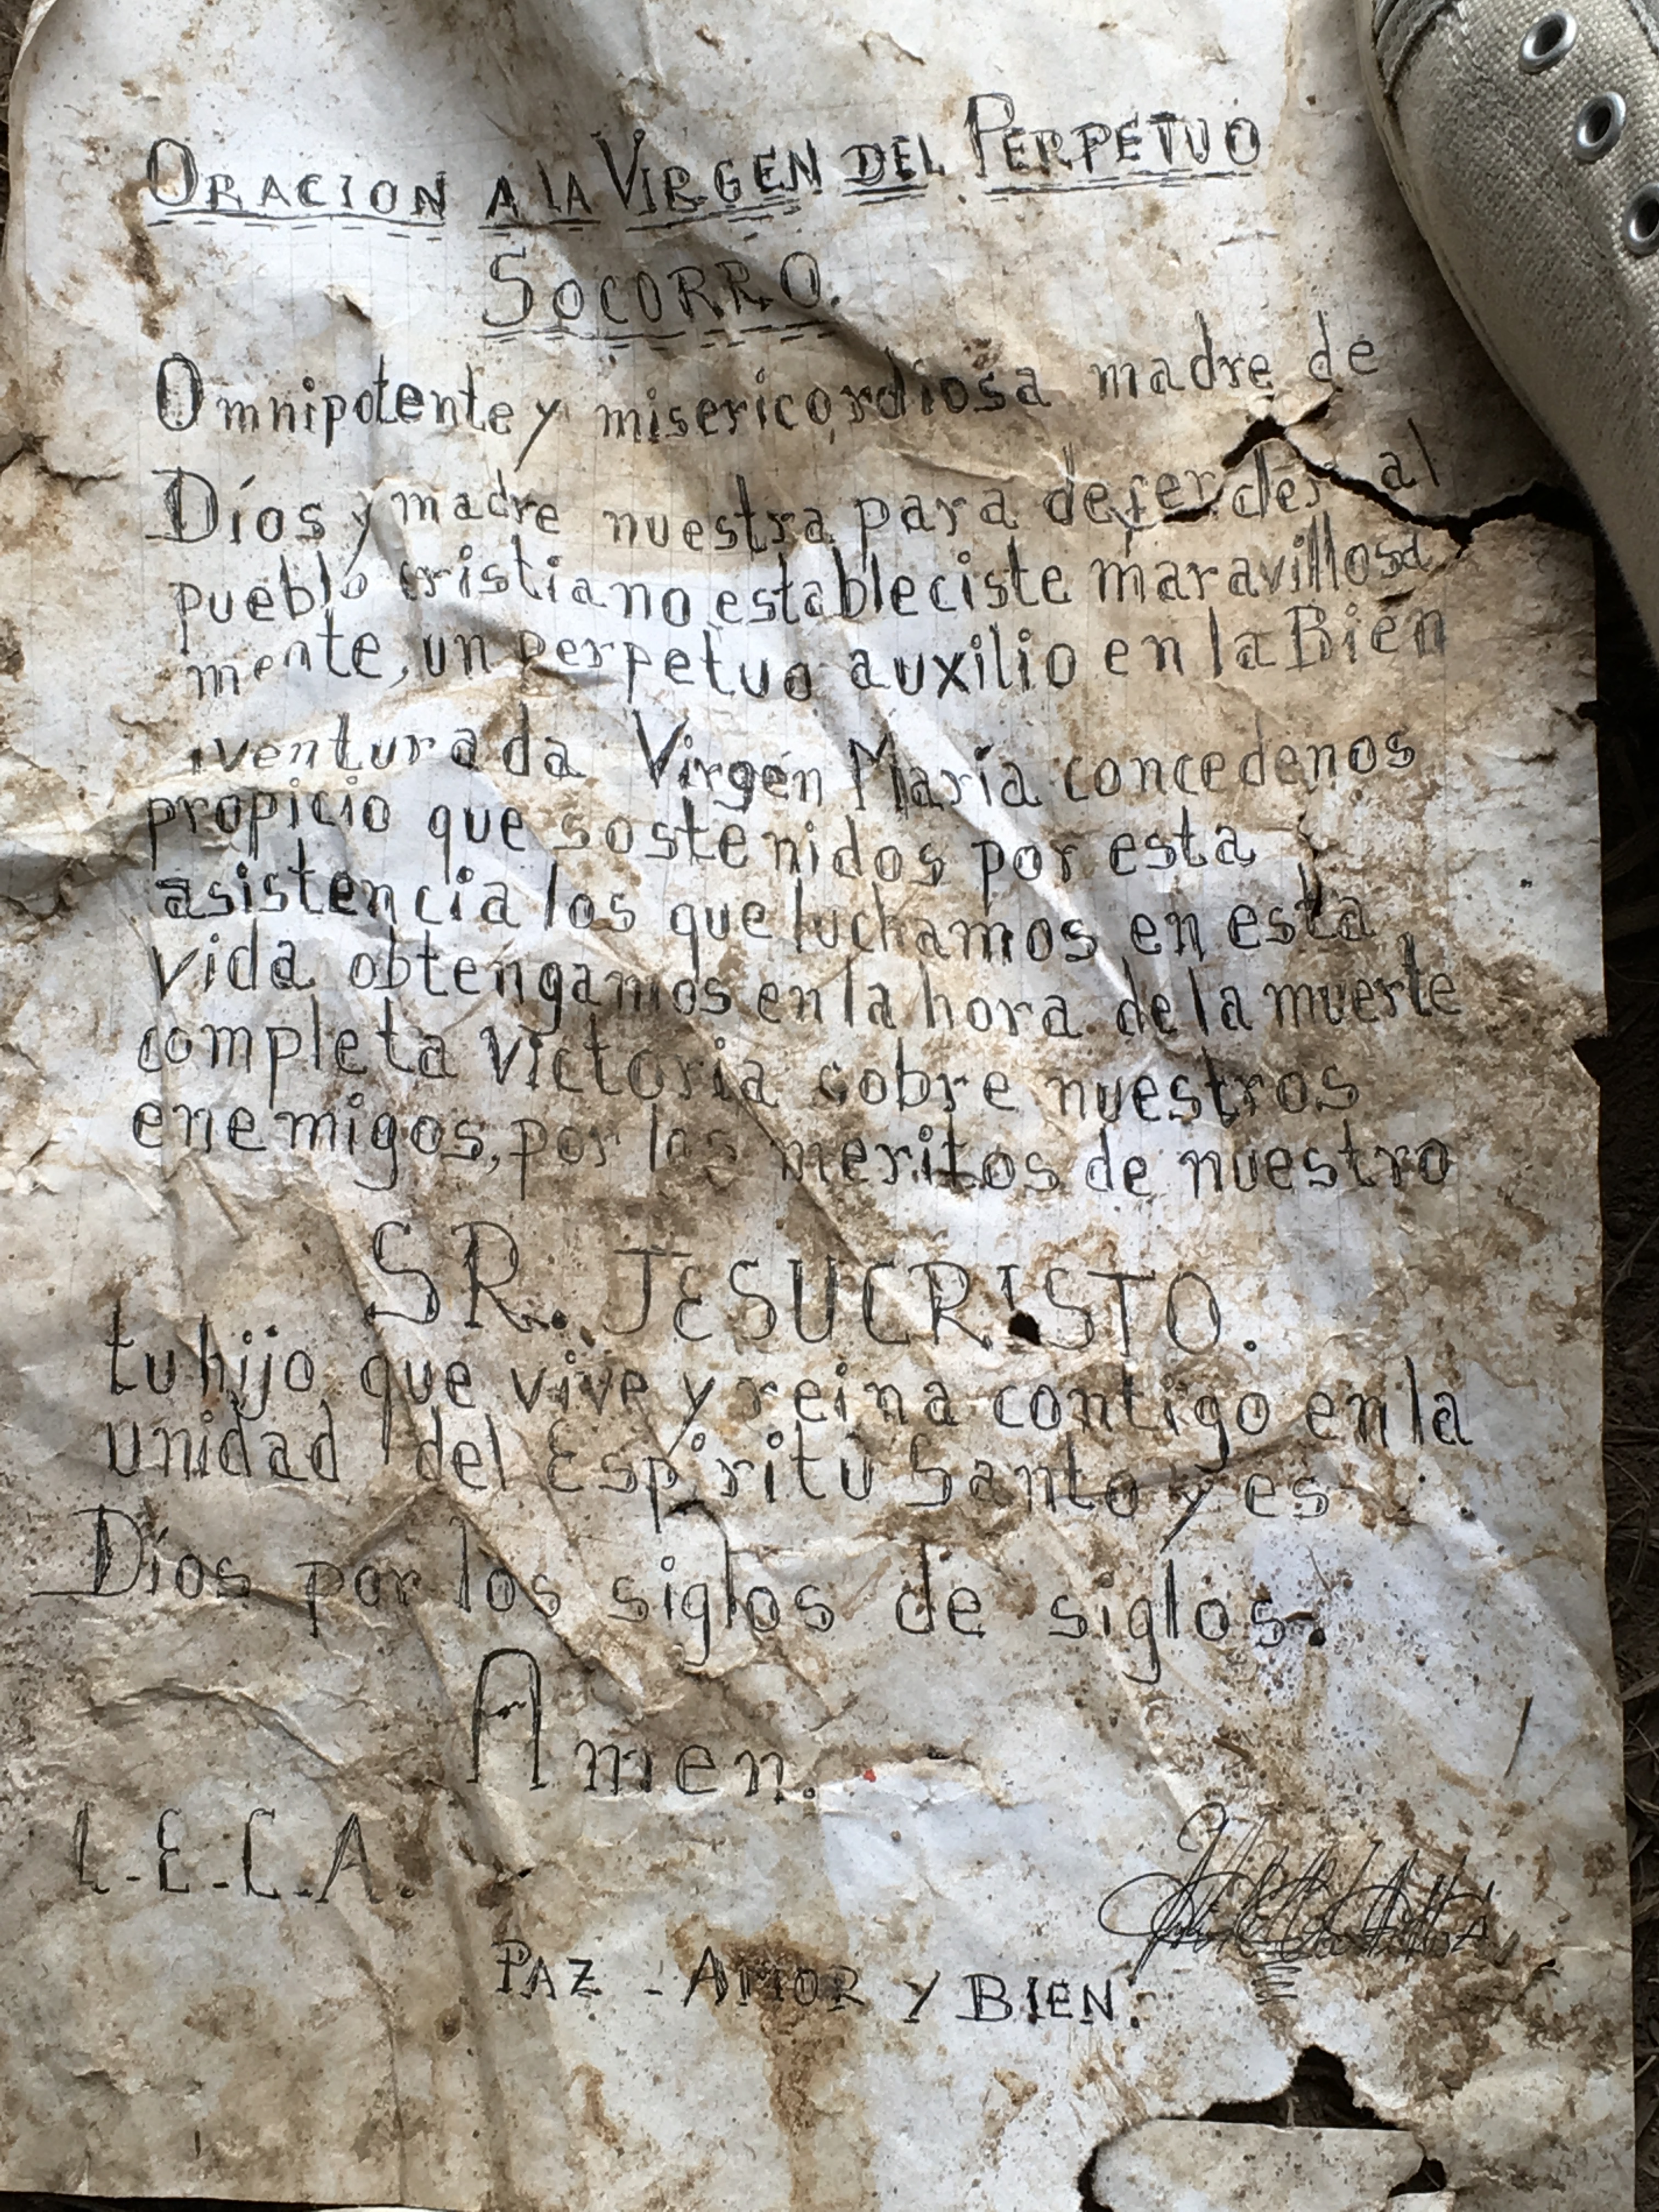 ORACION A LA VIRGEN DEL PERPETUO
SOCORRO.
Omnipotente y misericordiosa madre de
Díos y madre nuestra para defender al
pueblo cristiano estableciste maravillosa
mente, un perpetuo auxilio en la Bien
aventurada Virgen María concedenos
propicio que sostenidos por esta
asistencia los que luchamos en esta
vida obtengamos en la hora de la muerte
completa victoria sobre nuestros
enemigos, por los meritos de nuestro
SR. JESUCRISTO.
tu hijo que vive y reina contigo en la
unidad del Espiritu Santo y es
Díos por los siglos de siglos.
Amen.
L.E.C.A.
PAZ - AMOR Y BIEN.